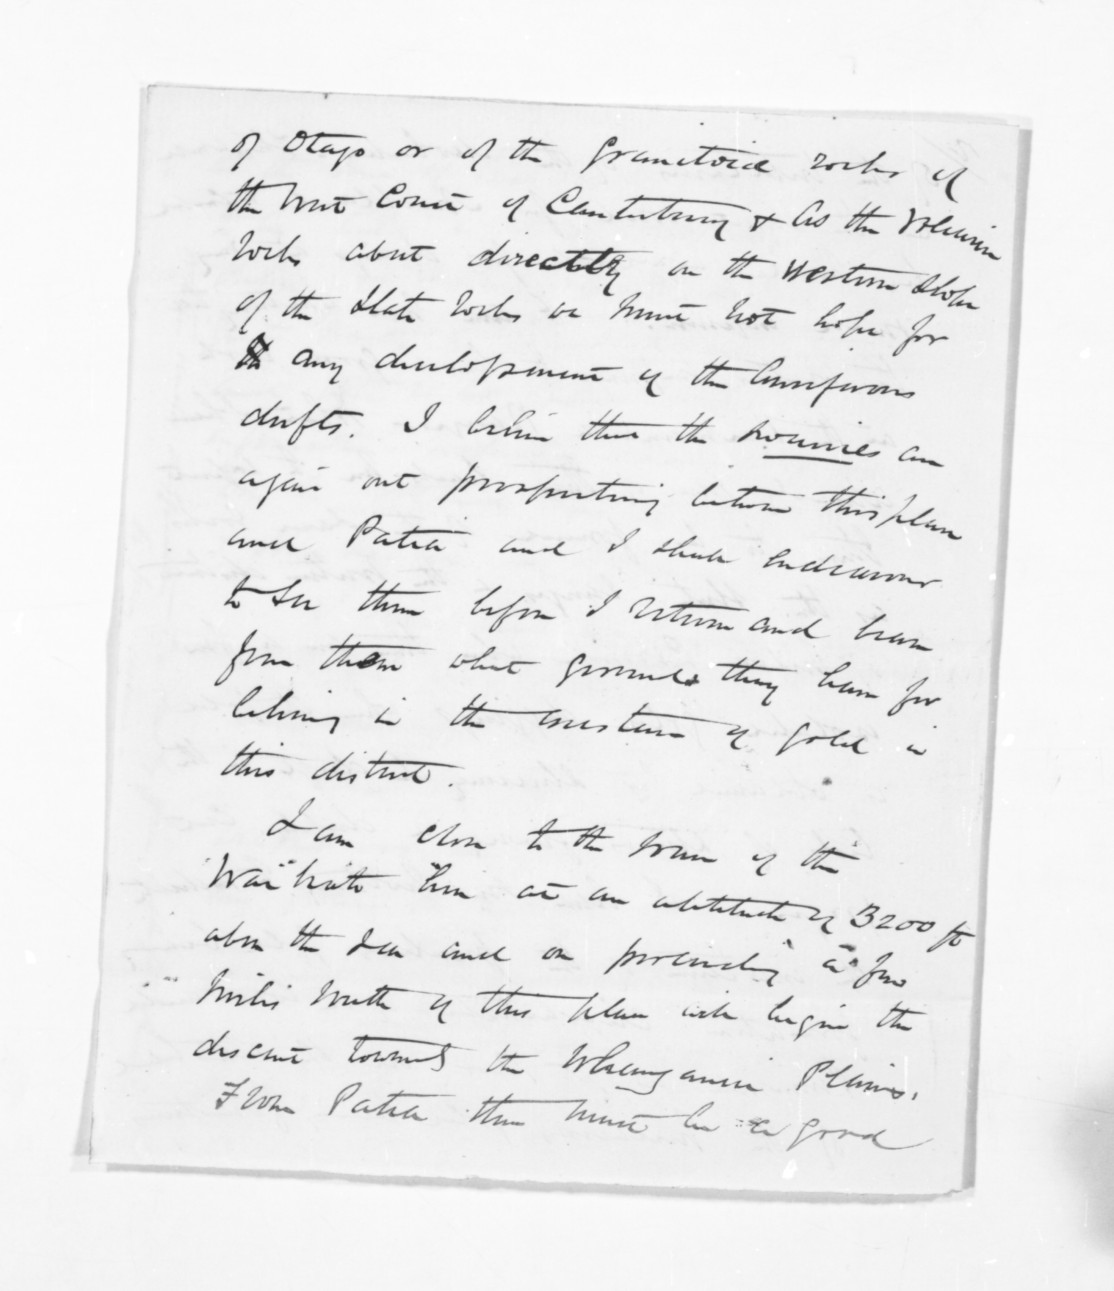 of Otago or of the Granitoid rocks of
the West Coast of Canterbury & As the Volcanic
rocks abut directly on the Western slope
of the Slate rocks we must not hope for
any development of the auriferous
drifts. I believe that the Mounies are
again out prospecting between this place
and Patea and I shall endeavour
to see them before I return and learn
from them what grounds they have for
believing in the existence of gold in
this district.
I am close to the of the
at an altitude of 3200 ft
above the Sea and on proceeding a few
miles North of this place will begin the
descent towards the Whanganui Plains.
From Patea there must be a good